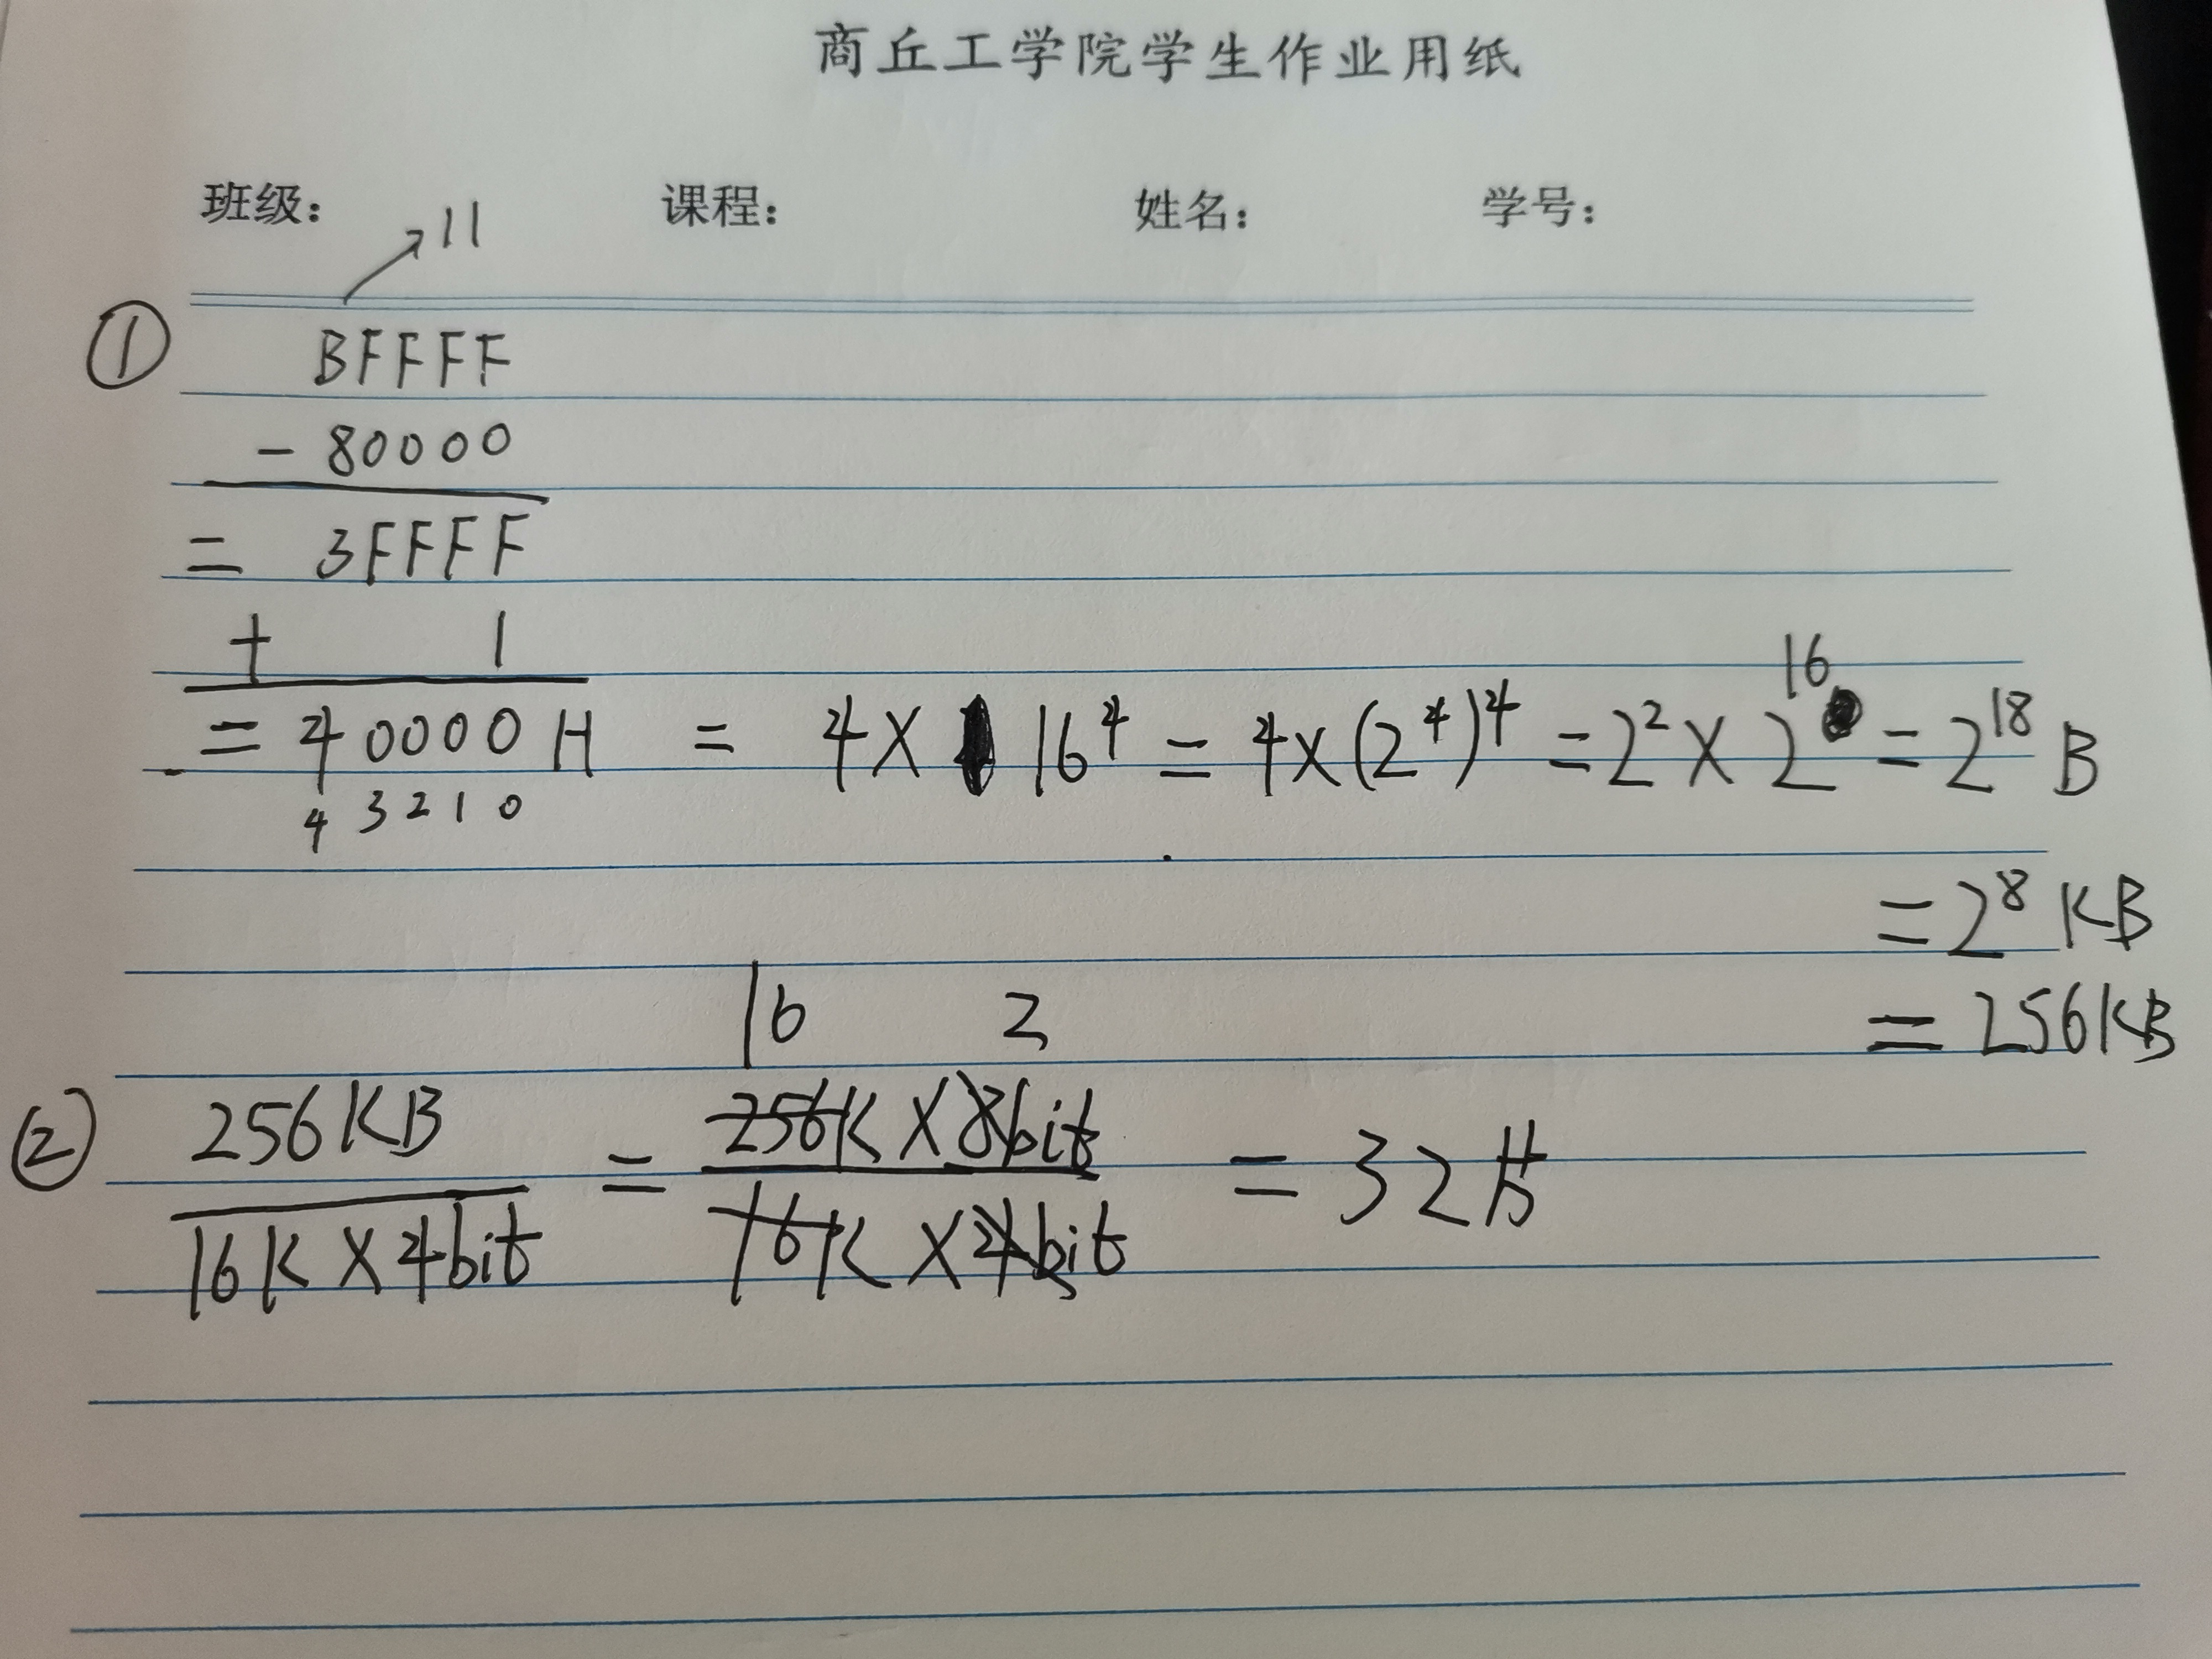 商丘工学院学生作业用纸
班级: 课程: 姓名: 学号:
11
① BFFFF
- 80000
= 3FFFF
+ 1
= 40000H = 4X 16⁴ = 4x(2⁴)⁴ = 2² X 2¹⁶ = 2¹⁸ B
4 3 2 1 0
= 2⁸ KB
= 256KB
16 2
② 256KB / 16K X 4bit = 256K X 8bit / 16K X 4bit = 32片